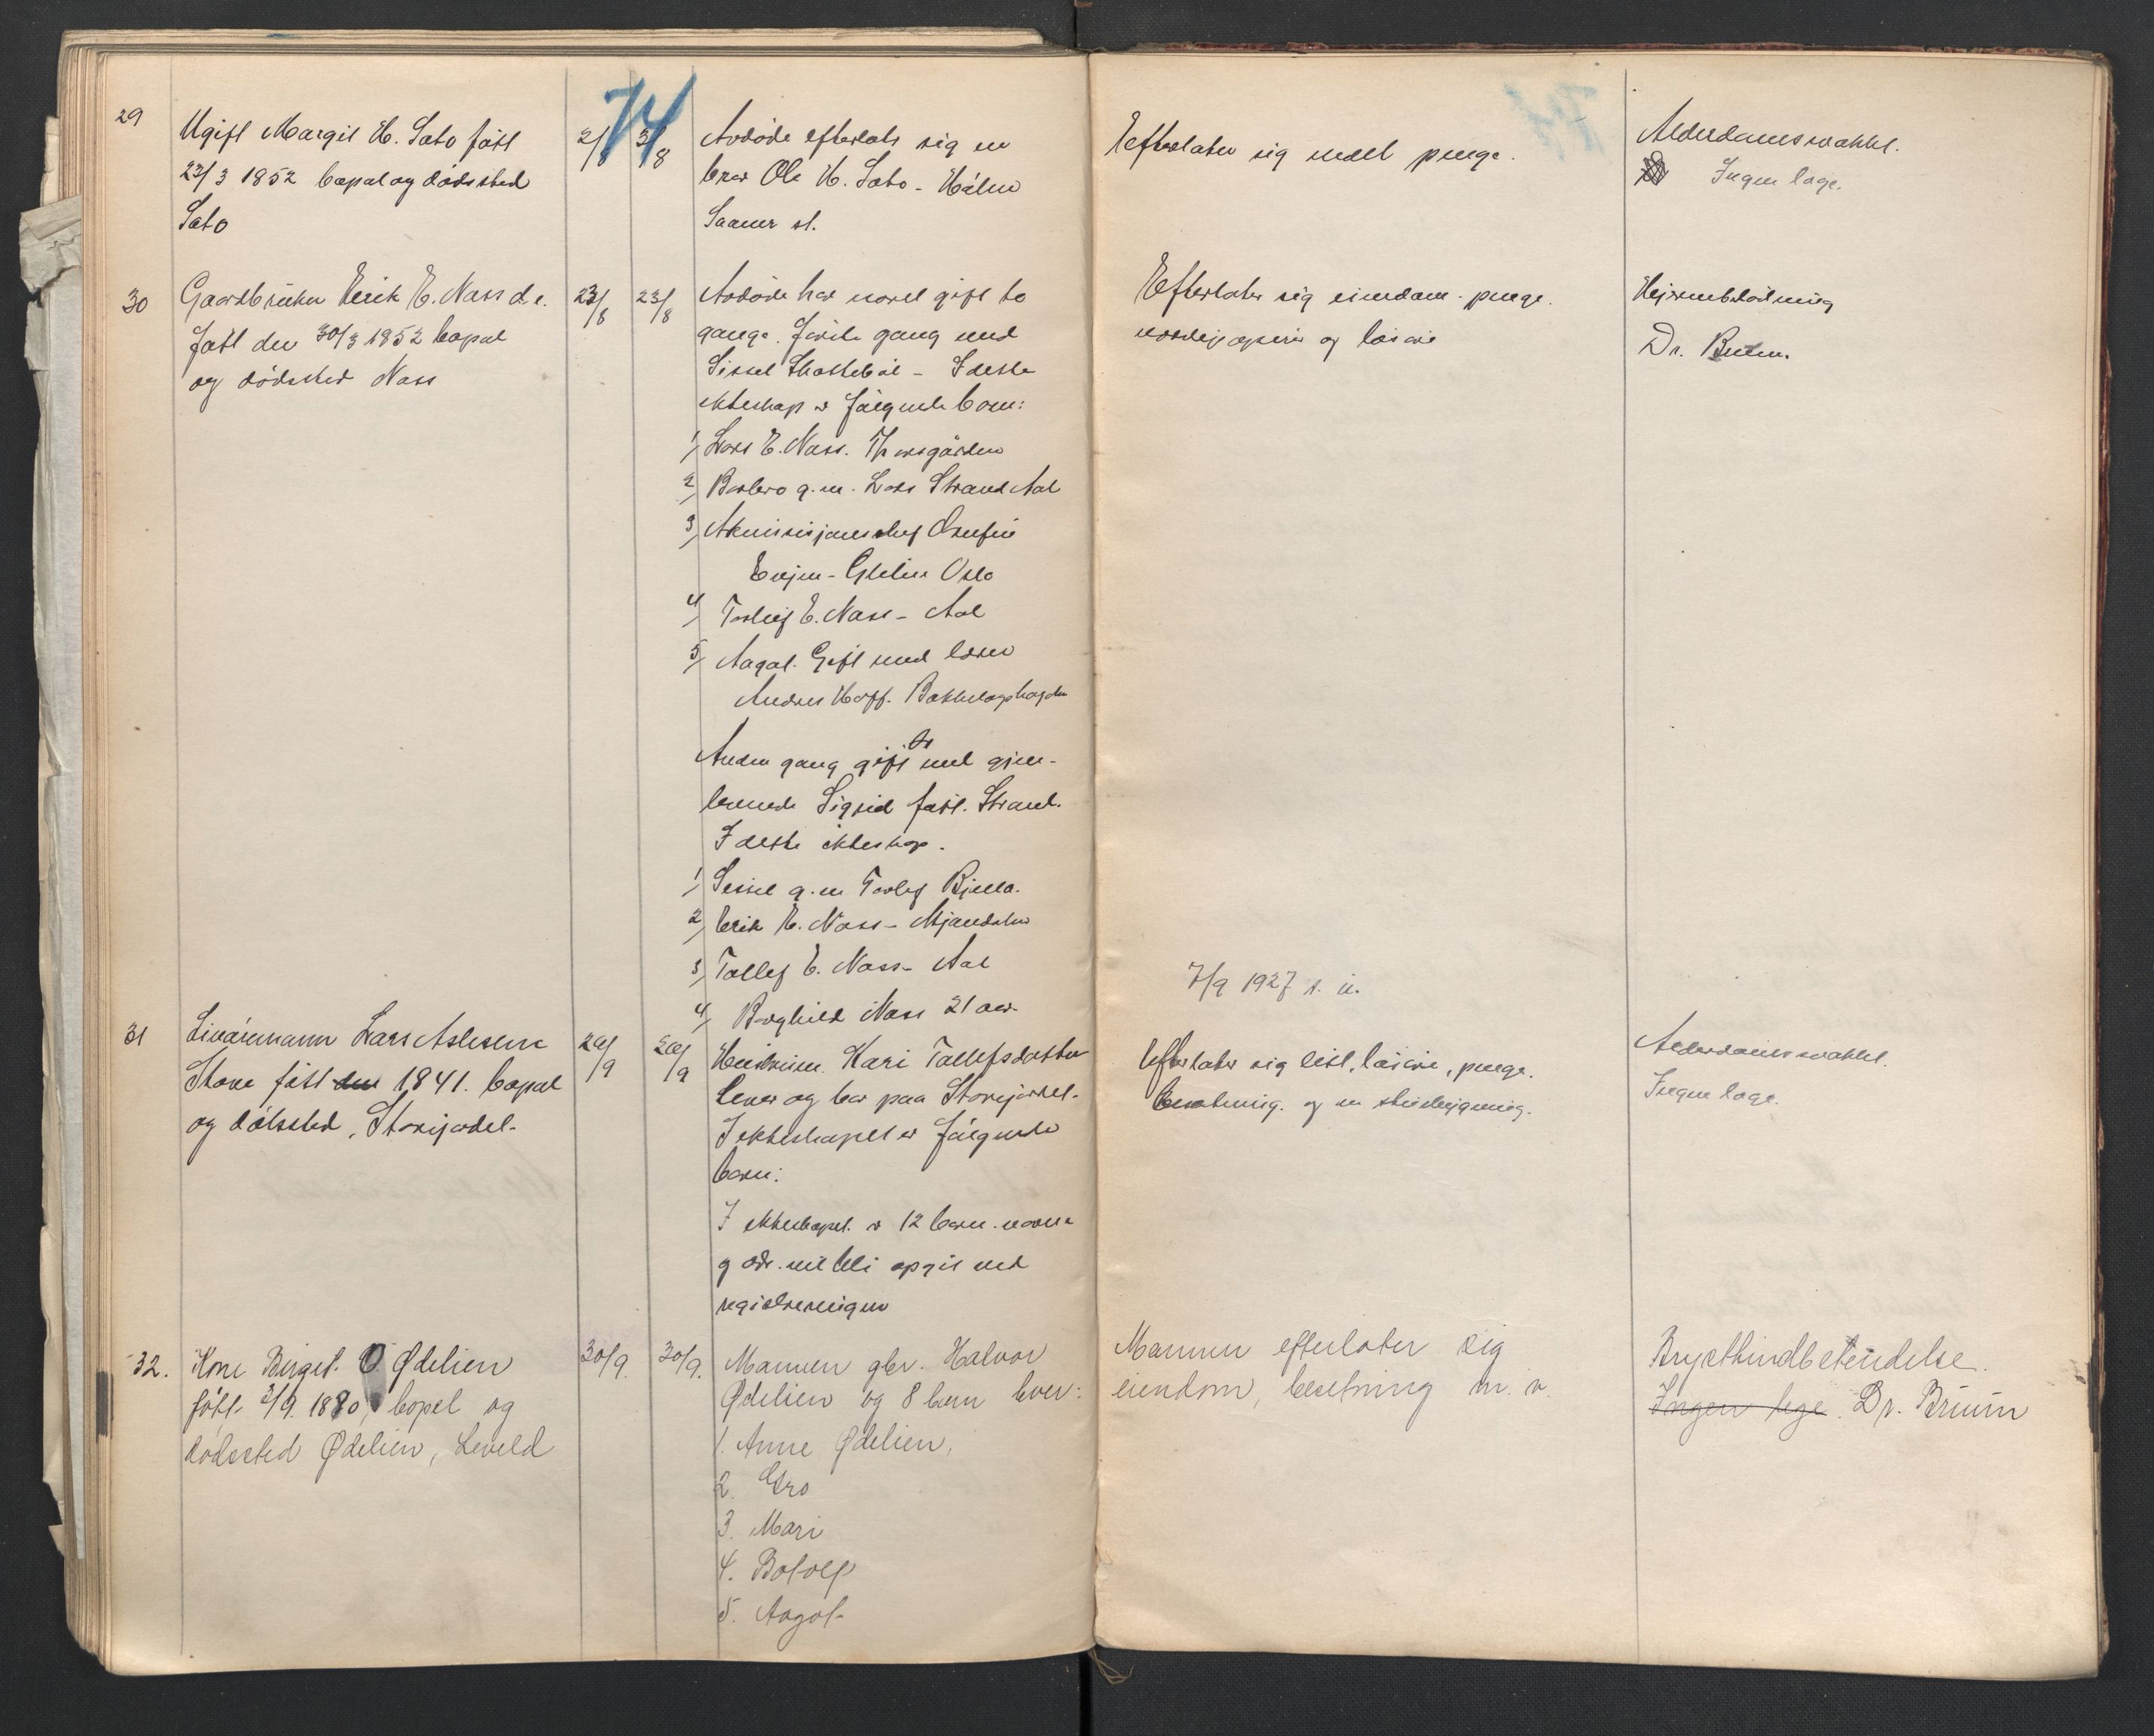 74
29
Ugift Margit H. Sato født
23/3 1852 bopæl og dødssted
Sato
2/8
3/8
Avdøde efterlate sig en
bror Ole H. Sato -
st.
Efterlater sig endel penge.
Alderdomssvakhet.
Ingen læge.
30
Gaardbruker Eirik E. Nass d.e.
født den 30/3 1852 bopæl
og dødssted Nass
23/8
23/8
Avdøde har været gift to
gange. Første gang med
Sissel - I dette
ekteskap er følgende barn:
1/ Lars E. Nass.
2/ Barbro g.m. Lars Strand Aal
3/
Oslo
4/ Torleif E. Nass - Aal
5/ Aagot. Gift med lærer
Andres Hoff.
Anden gang gift er med gjen-
levende Sigrid født. Strand.
I dette ekteskap.
1/ Sissel g.m Torleif Bjella.
2/ Eirik E. Nass - Mjøndalen
3/ Tollef E. Nass - Aal
4/ Borghild Nass 21 aar
Efterlater sig eiendom. penge.
verdipapirer og løsøre
Hjerneblødning
Dr. Bruun.
7/9 1927 s. u.
31
Livøremann Lars Aslesen
Stave født den 1841. bopæl
og dødssted,
20/9
20/9
Kari Tollefsdatter
lever og bor paa
I ekteskapet er følgende
barn:
I ekteskapet er 12 barn. navne
og adr. vil bli opgit ved
registreringen
Efterlater sig litt, løsøre, penge.
Besetning. og en
Alderdomssvakhet.
Ingen læge.
32.
Kone Birgit O. Ødelien
født 3/9 1880, bopel og
dødssted Ødelien, Leveld
30/9.
30/9.
Mannen gbr. Halvor
Ødelien og 8 barn lever:
1. Anne Ødelien,
2. Gro
3. Mari
4. Botolf
5. Aagot
Mannen efterlater sig
eiendom, besetning m. v.
Brysthindbetendelse.
Ingen lege. Dr. Bruun